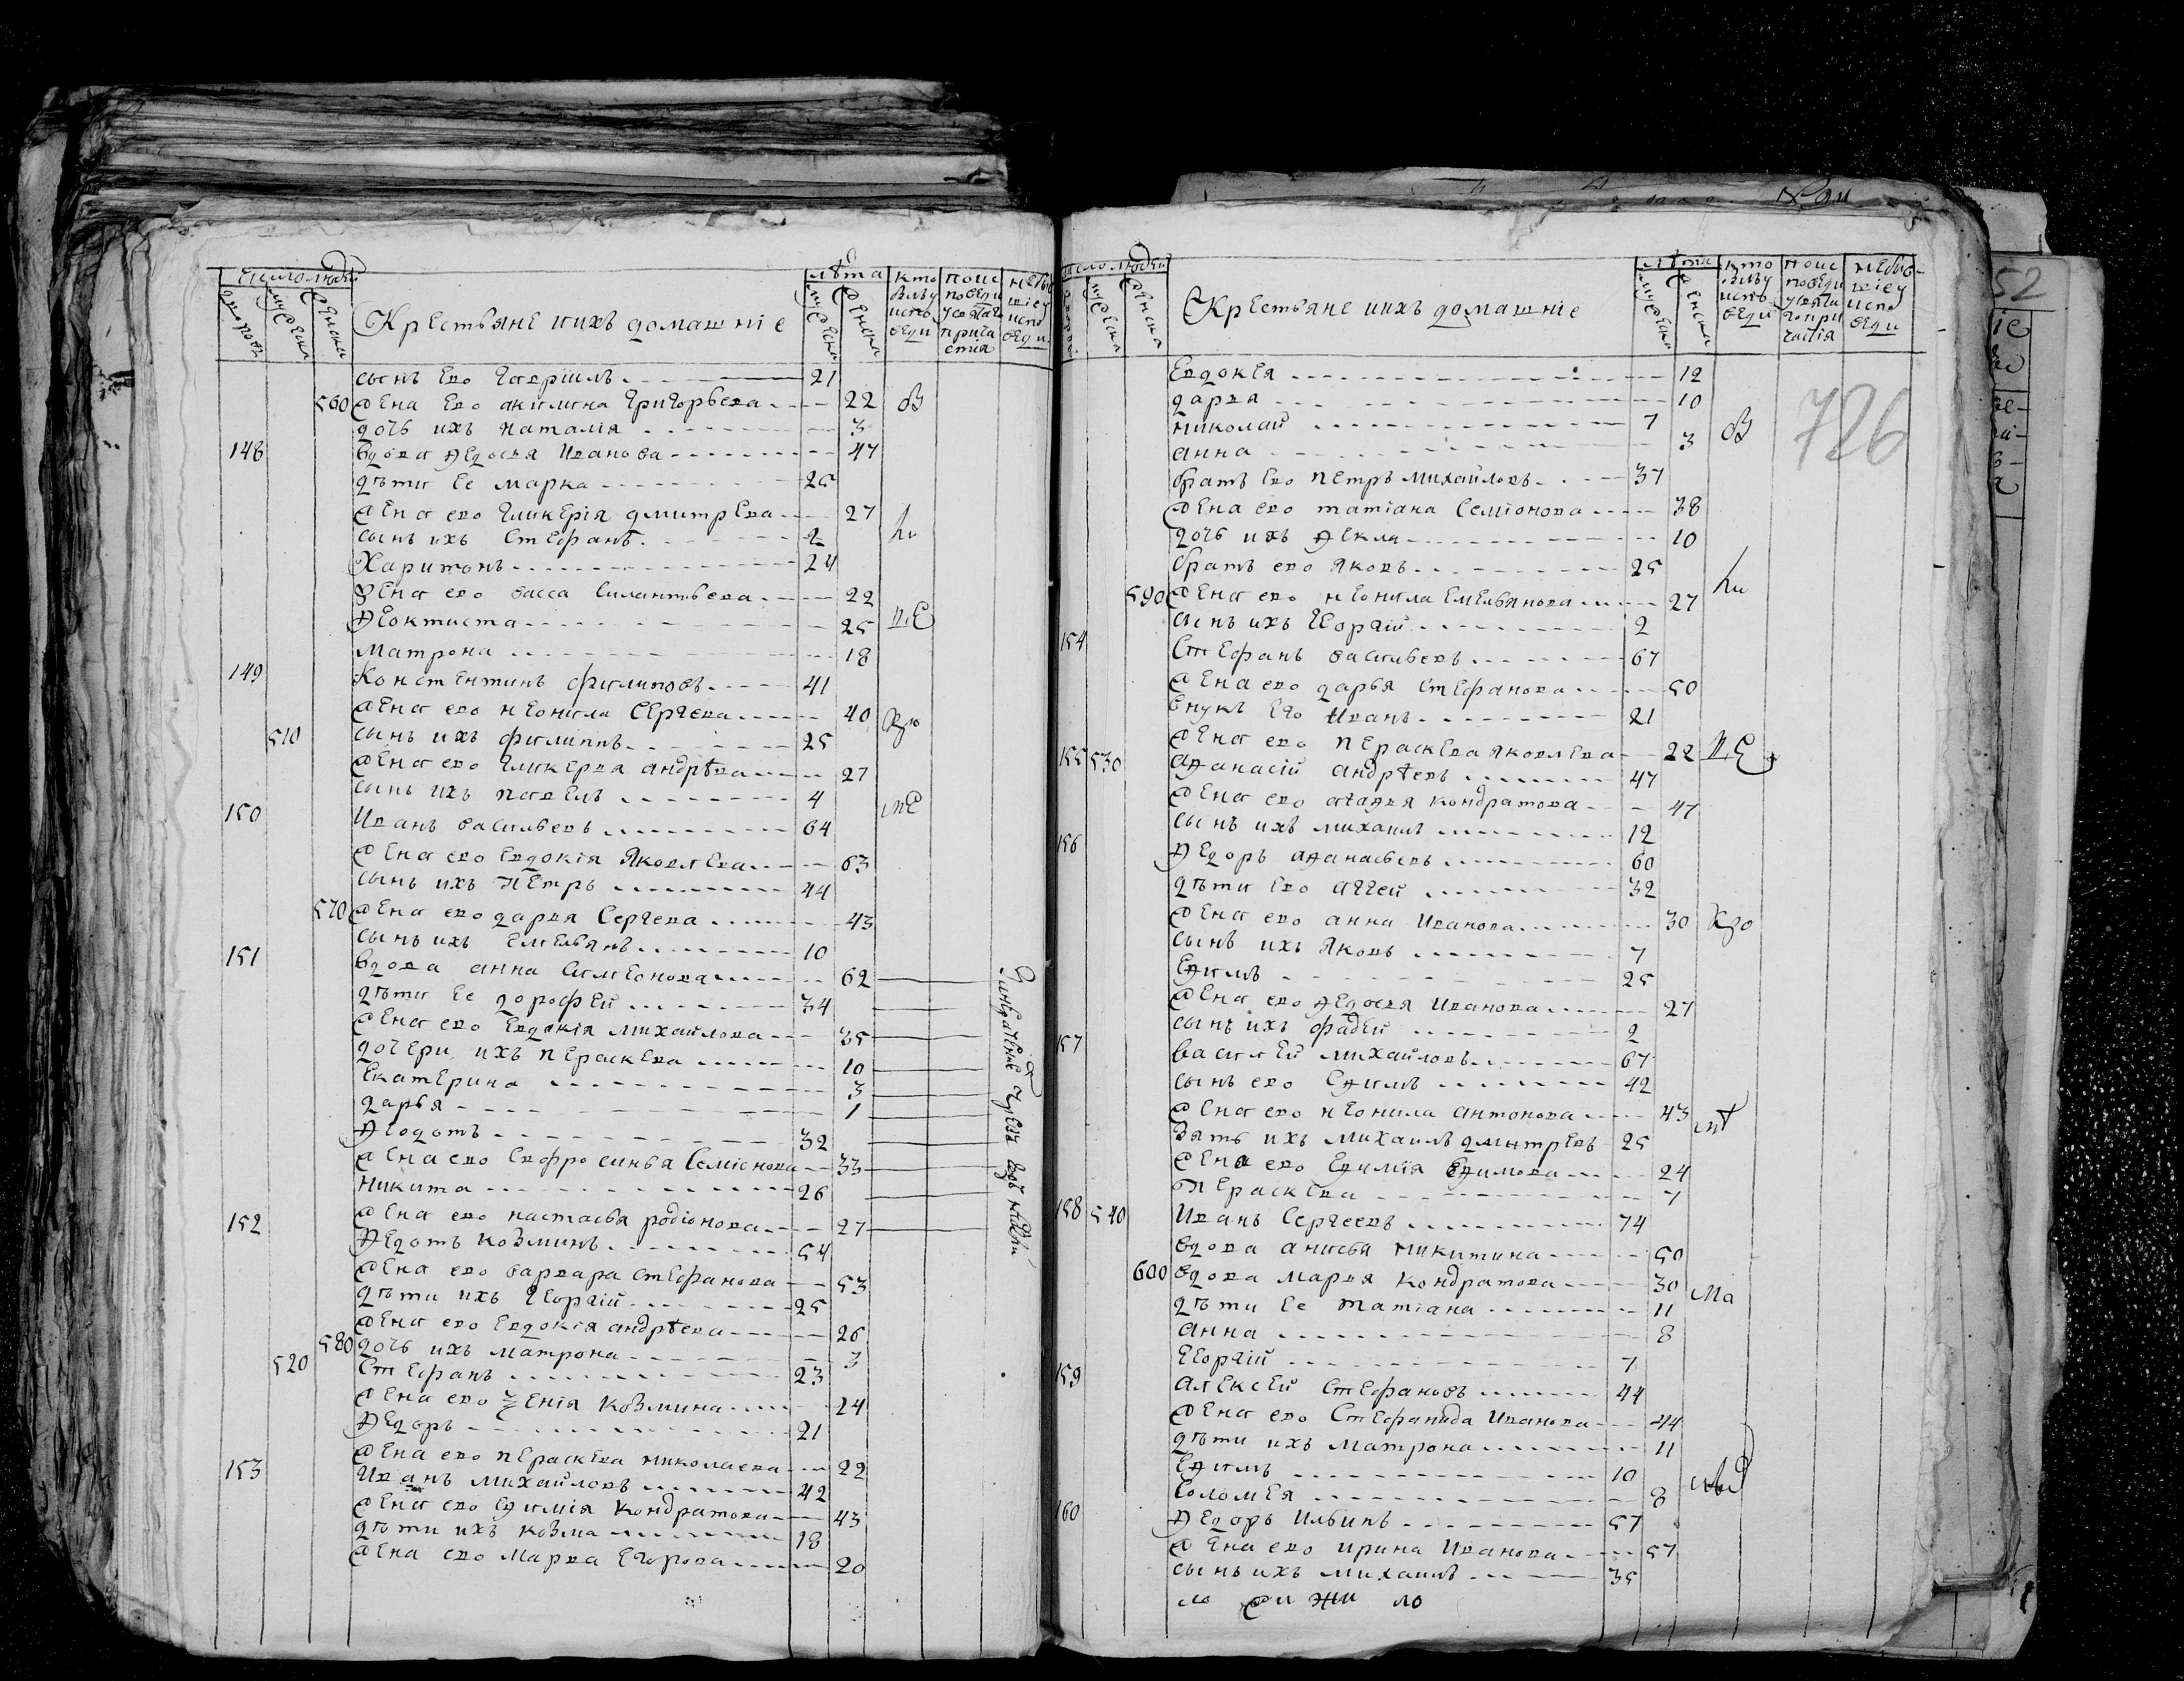 число людей
дворовъ
мужска
женска
Крестьяне и ихъ домашніе
лѣта
мужска
женска
кто были у исповеди
сынъ ево Гавріилъ 21
560 жена ево акилина Григорьева 22 бы
дочь ихъ наталія 3
148 вдова Ѳедосья Иванова 47
дѣти Ее марка 25
жена ево Гликерія дмитрева 27 ли
сынъ ихъ Стефанъ 2
Харитонъ 24
жена ево васса Силантьева 22
Ѳеоктиста 25 
Матрона 18
149 Константинъ филиповъ 41
жена ево неонила Сергева 40
510 сынъ ихъ филиппъ 25
жена ево Гликерия андрѣва 27
сынъ ихъ павелъ 4
150 Иванъ васильевъ 64
жена ево Евдокія Яковлева 63
сынъ ихъ петръ 44
570 жена ево дарья Сергева 43
сынъ ихъ Емельянъ 10
151 вдова анна Симеонова 62
дѣти Ее дорофей 34
жена ево Евдокія михайлова 35
дочери ихъ параскева 10
Екатерина 3
дарья 1
Ѳеодотъ 32
жена ево Евфросинья Семіонова 33
никита 26
жена ево настасья родіонова 27
152 Ѳедотъ козминъ 54
жена ево варвара стефанова 53
дѣти ихъ Георгій 25
жена ево Евдокія андрѣева 26
580 дочь ихъ матрона 3
520 Стефанъ 23
жена ево Ѯенія козмина 24
Ѳедоръ 21
жена ево параскева николаева 22
153 Иванъ михайловъ 42
жена ево Еѳимія кондратова 43
дѣти ихъ козма 18
жена ево марѳа Егорова 20
число людей
мужска
женска
Крестьяне и ихъ домашніе
лѣта
мужска
женска
кто были у исповеди
726
Евдокея 12
дарья 10
николай 7 бы
анна 3
братъ ево петръ михайловъ 37
жена ево татіана Семіонова 38
дочь ихъ Ѳекла 10
братъ ево яковъ 25 ли
590 жена ево неонила Емельянова 27
сынъ ихъ Георгій 2
154 Стефанъ васильевъ 67
жена ево дарья стефанова 50
внукъ Его Иванъ 21
жена ево параскева яковлева 22
155 530 аѳанасій андрѣевъ 47
жена ево агаѳья кондратова 47
сынъ ихъ михаилъ 12
156 Ѳедоръ аѳанасьевъ 60
дѣти ево аггей 32
жена ево анна Иванова 30
сынъ ихъ яковъ 7
Еѳимъ 25
жена ево Ѳедосья Иванова 27
сынъ ихъ фадей 2
157 василей михайловъ 67
сынъ ево Еѳимъ 42
жена ево неонила антонова 43
зять ихъ михаилъ дмитревъ 25
жена ево Еѳимія Еѳимова 24
параскева 7
158 540 Иванъ Сергеевъ 74
вдова анисья никитина 50
600 вдова марья кондратова 30 ма
дѣти Ее татіана 11
анна 8
Георгій 7
159 алексей стефановъ 44
жена ево Стефанида Иванова 44
дѣти ихъ матрона 11
Еѳимъ 10
Соломея 8
160 Ѳедоръ Ильинъ 57
жена ево ирина Иванова 57
сынъ ихъ михаилъ 35
52